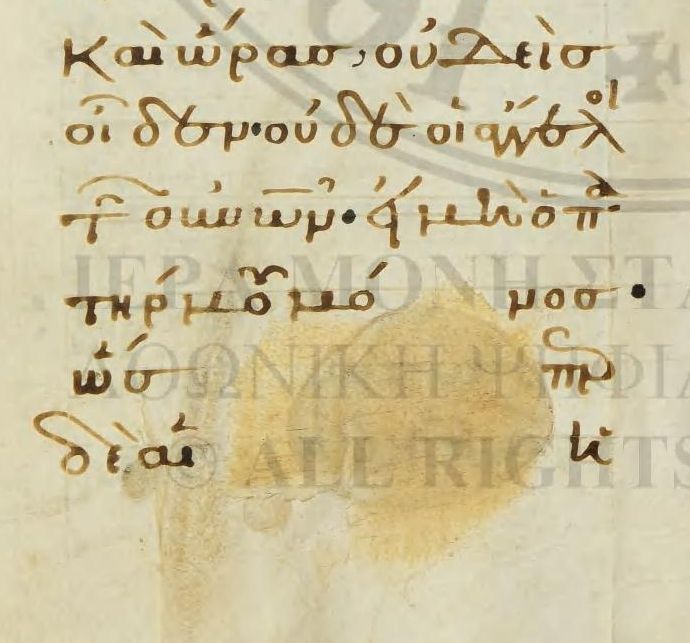 καὶ ὥρας, οὐδεὶς
οἶδεν· οὐδὲ οἱ ἄγγελοι
τῶν οὐνῶν· εἰ μὴ ὁ πα
τήρ μου μόνος·
ὥσ περ
δὲ αἱ
ΙΕΡΑ ΜΟΝΗ ΣΤΑ
ΑΘΩΝΙΚΗ ΨΗΦΙΑ
© ALL RIGHTS